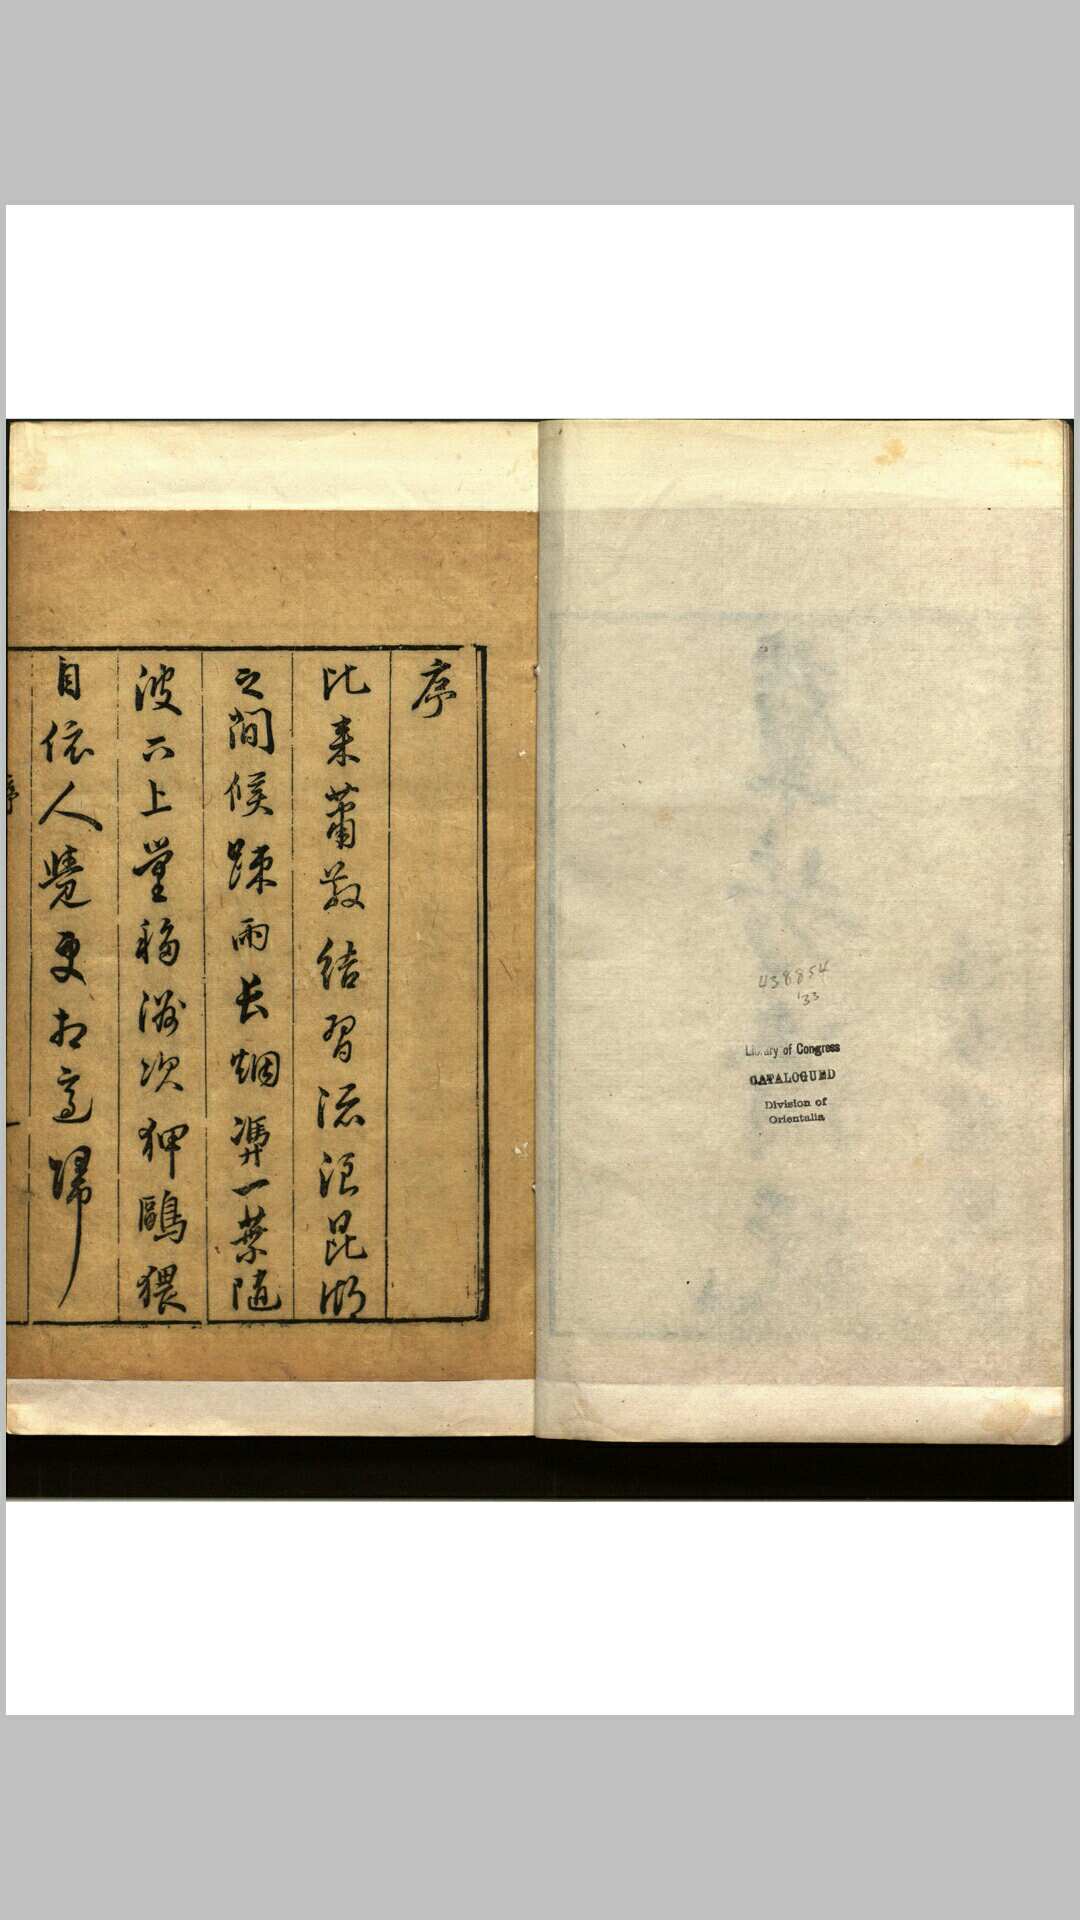 序
比來蕭散結習流浪昆湖
之間候踈雨長烟憑一葉隨
波上下堂移游次狎鷗猥
自依人覺更相高歸
序
一
438854
'33
Library of Congress
CATALOGUED
Division of
Orientalia